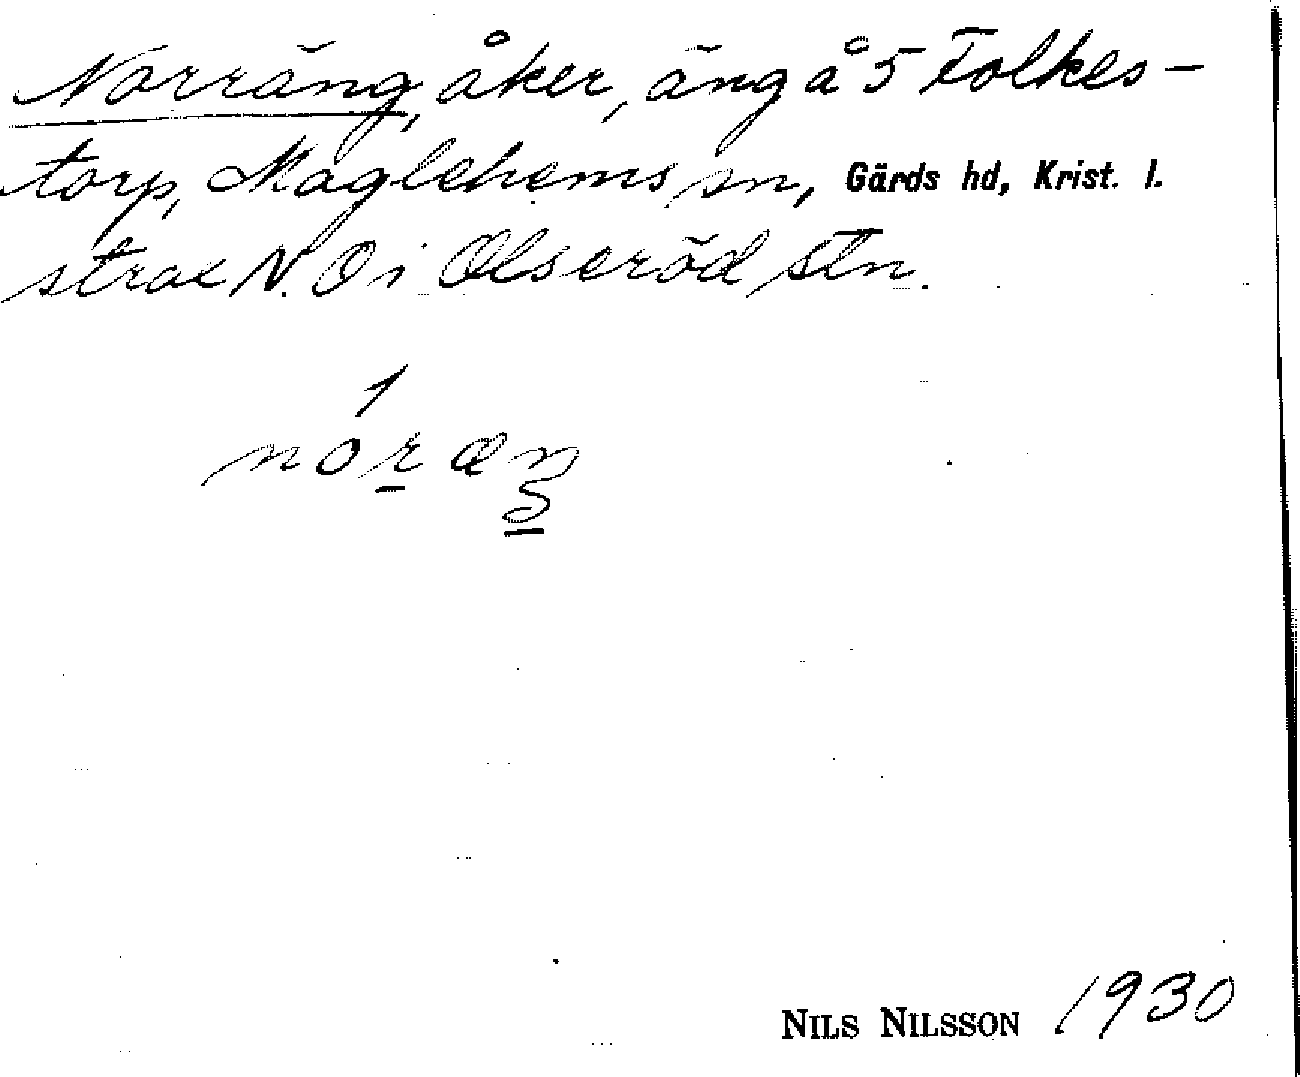 Norräng, åker, äng å 5 Folkes-
torp, Maglehems sn, Gärds hd, Krist. l.
strax N. O i Olseröd stn.
1
noræŋ
NILS NILSSON 1930